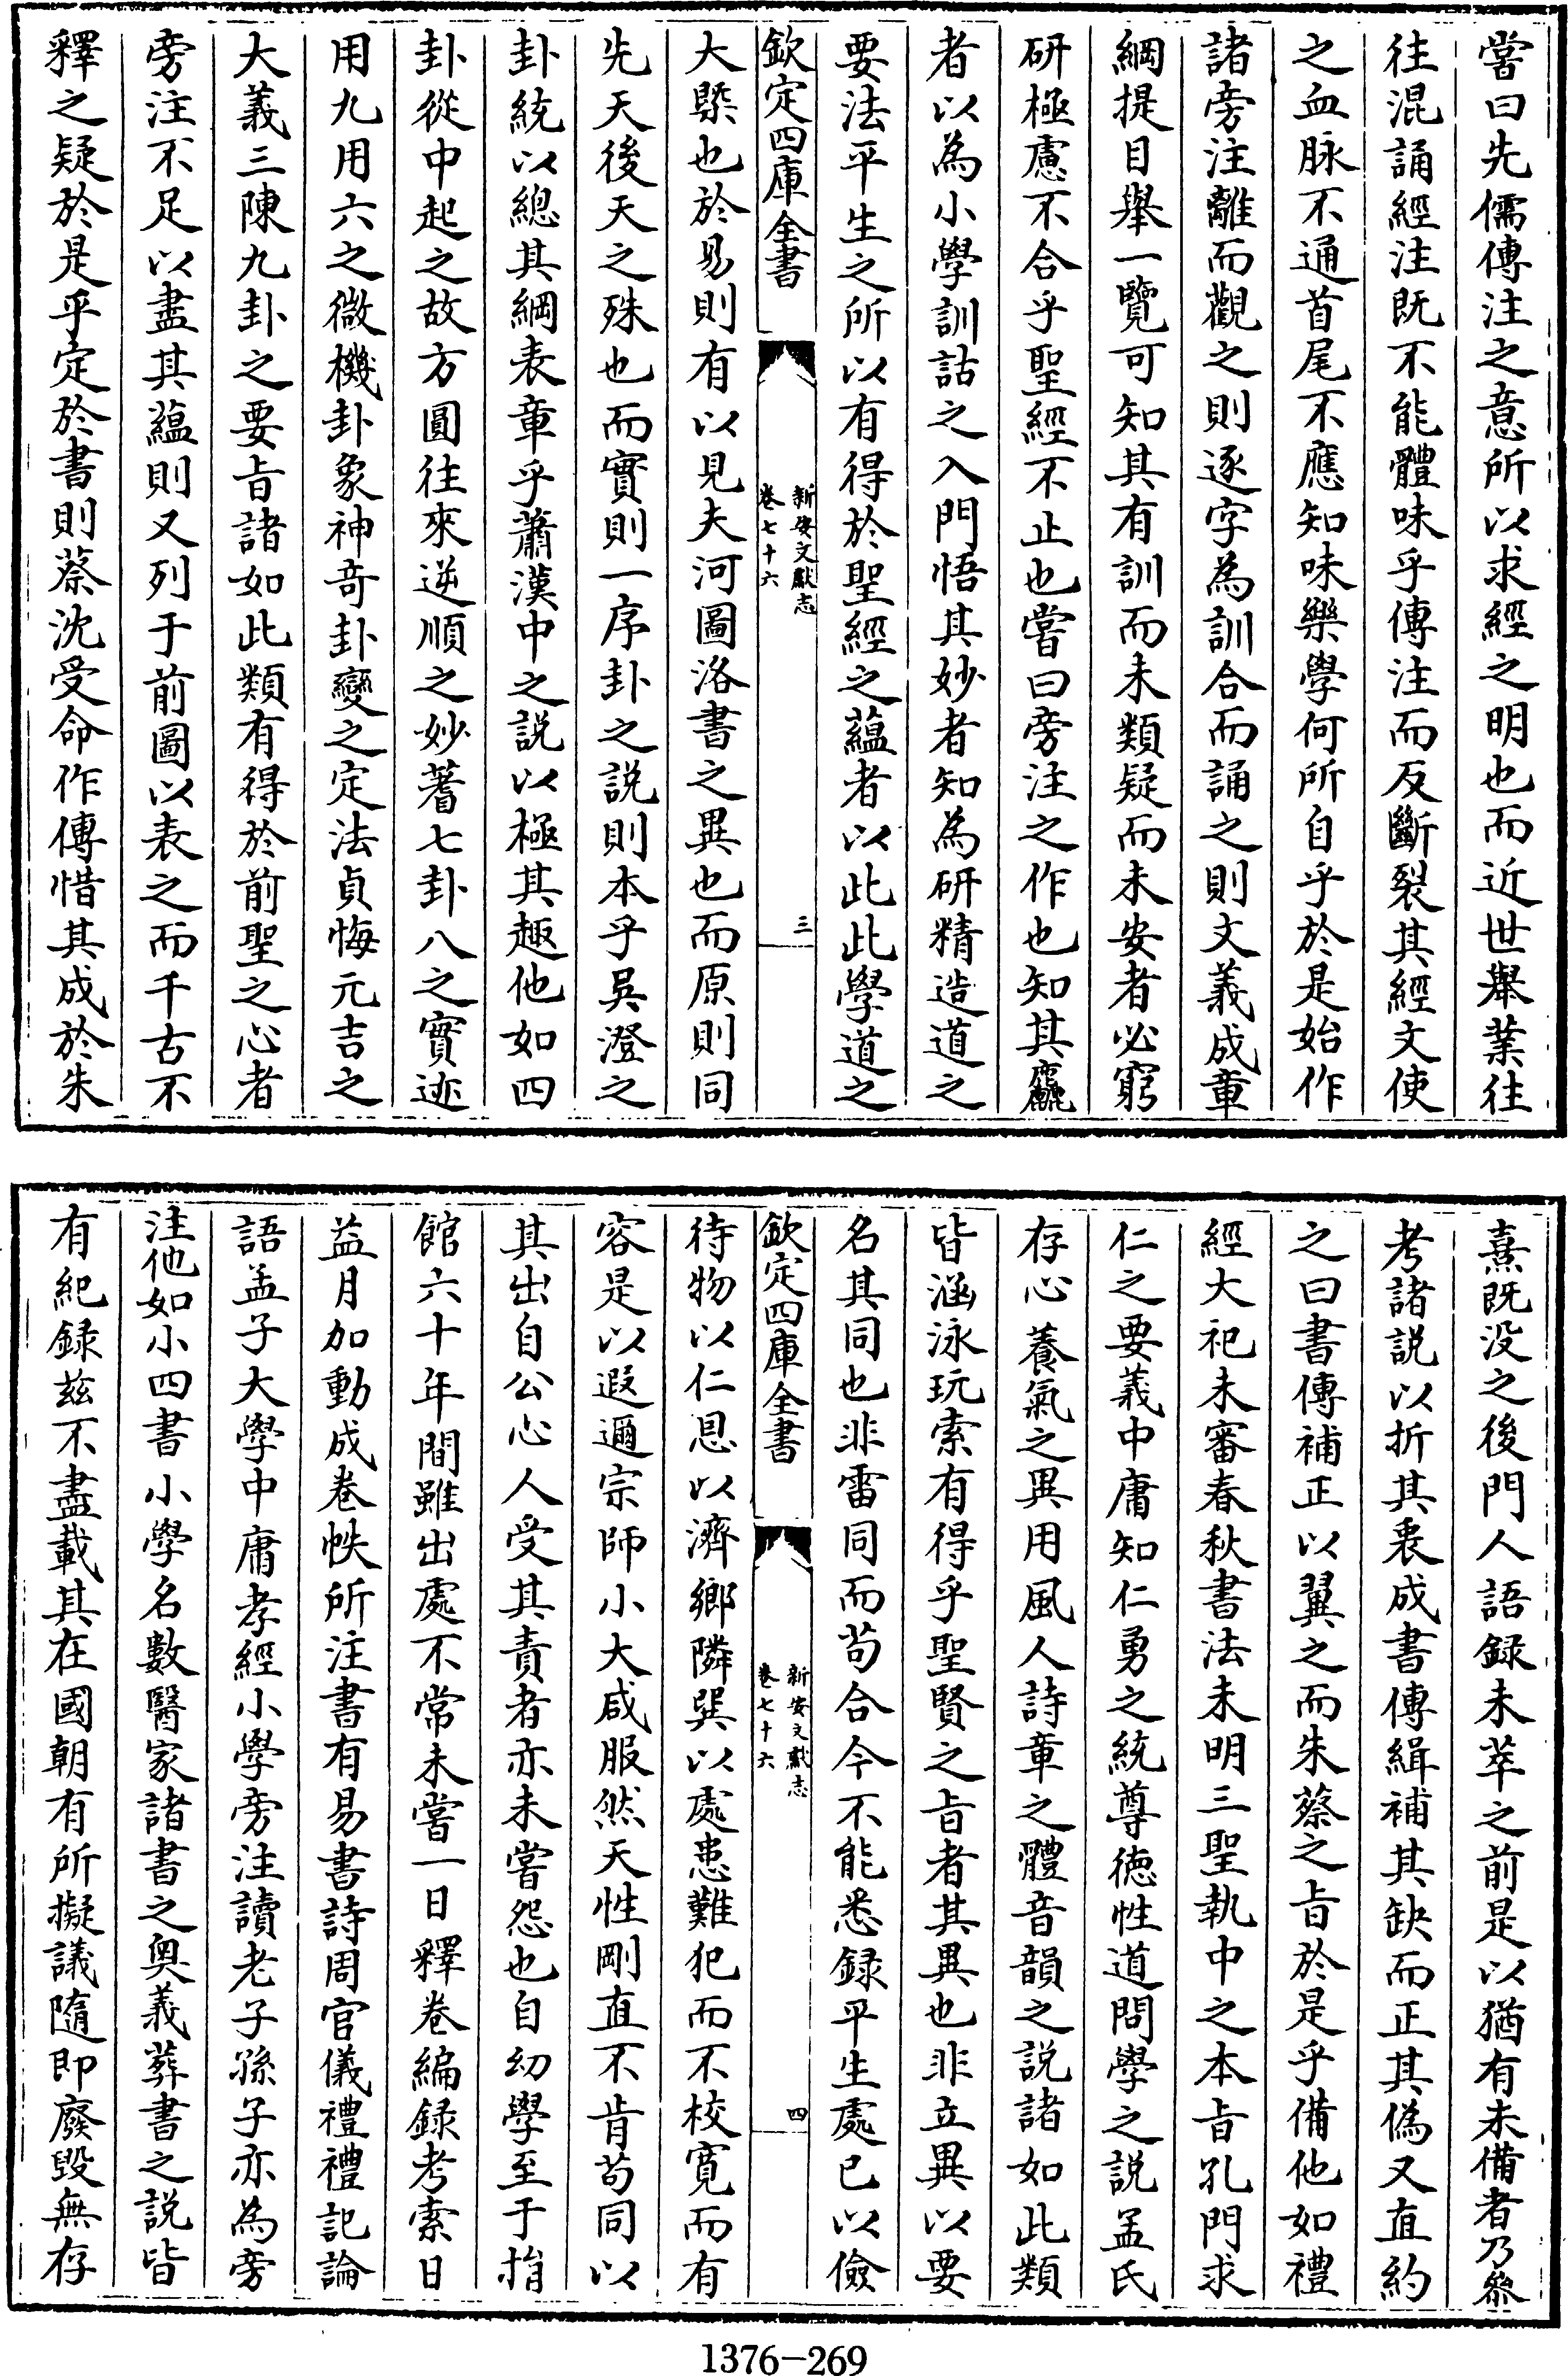 嘗曰先儒傳注之意所以求經之明也而近世舉業往
往混誦經注既不能體味乎傳注而反斷裂其經文使
之血脉不通首尾不應知味樂學何所自乎於是始作
諸旁注離而觀之則逐字為訓合而誦之則文義成章
綱提目舉一覽可知其有訓而未類疑而未安者必窮
研極慮不合乎聖經不止也嘗曰旁注之作也知其麤
者以為小學訓詁之入門悟其妙者知為研精造道之
要法平生之所以有得於聖經之蘊者以此此學道之
欽定四庫全書
新安文獻志
卷七十六
三
大槩也於易則有以見夫河圖洛書之異也而原則同
先天後天之殊也而實則一序卦之説則本乎吳澄之
卦統以總其綱表章乎蕭漢中之説以極其趣他如四
卦從中起之故方圓往來逆順之妙蓍七卦八之實迹
用九用六之微機卦象神竒卦變之定法貞悔元吉之
大義三陳九卦之要㫖諸如此類有得於前聖之心者
旁注不足以盡其蘊則又列于前圖以表之而千古不
釋之疑於是乎定於書則蔡沈受命作傳惜其成於朱
熹既没之後門人語録未萃之前是以猶有未備者乃叅
考諸説以折其衷成書傳緝補其缺而正其偽又直約
之曰書傳補正以翼之而朱蔡之㫖於是乎備他如禮
經大祀未審春秋書法未明三聖執中之本㫖孔門求
仁之要義中庸知仁勇之統尊徳性道問學之説孟氏
存心養氣之異用風人詩章之體音韻之説諸如此類
皆涵泳玩索有得乎聖賢之㫖者其異也非立異以要
名其同也非雷同而茍合今不能悉録平生處已以儉
欽定四庫全書
新安文獻志
卷七十六
四
待物以仁恩以濟鄉隣巽以處患難犯而不校寛而有
容是以遐邇宗師小大咸服然天性剛直不肯茍同以
其出自公心人受其責者亦未嘗怨也自幼學至于捐
館六十年間雖出處不常未嘗一日釋卷編録考索日
益月加動成卷帙所注書有易書詩周官儀禮禮記論
語孟子大學中庸孝經小學旁注讀老子孫子亦為旁
注他如小四書小學名數醫家諸書之奥義葬書之説皆
有紀録兹不盡載其在國朝有所擬議隨即廢毁無存
1376-269